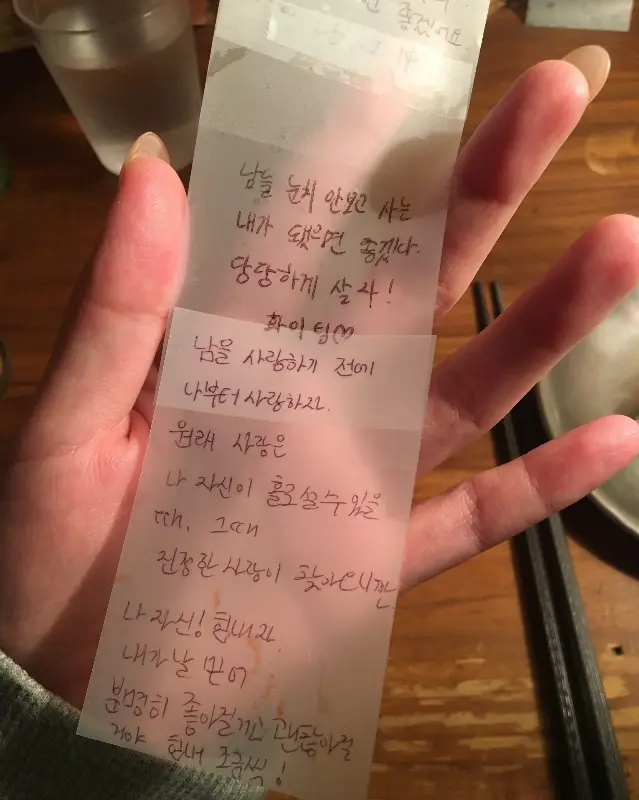 좋겠어요
남들 눈치 안보고 사는
내가 됐으면 좋겠다.
당당하게 살자!
화이팅
남을 사랑하기 전에
나부터 사랑하자.
원래 사랑은
나 자신이 홀로 설 수 있을
때, 그때
진정한 사랑이 찾아오니깐.
나 자신! 힘내자.
내가 날 믿어
분명히 좋아질꺼고 괜찮아질
거야 힘내 조금씩!